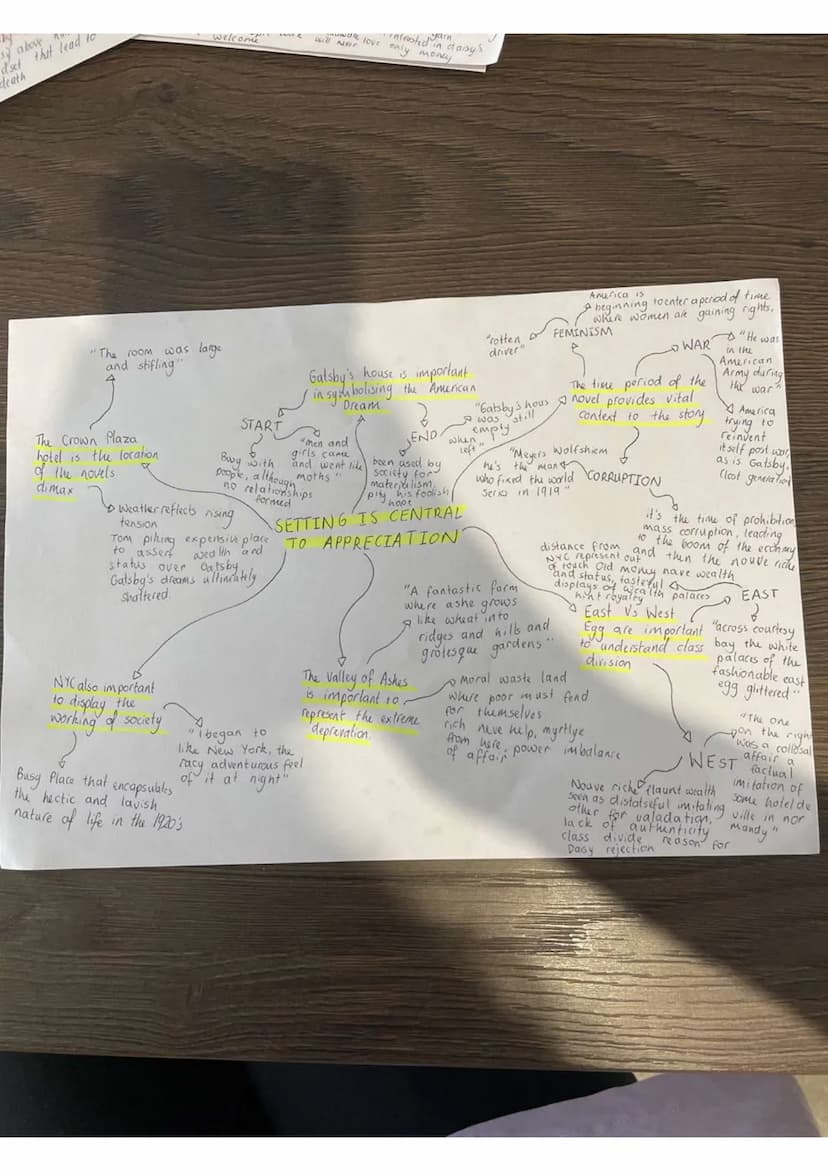 sy above
dset that lead to
death
welcome
will never love only money
interested in daisy's
"The room was large
and stifling"
The Crown Plaza
hotel is the location
of the novels
climax
Weather reflects rising
tension
Tom piking expensive place
to assert wealth and
status over Gatsby
Gatsby's dreams ultimately
shattered.
Gatsby's house is important
in symbolising the American
Dream
START
Busy with
people, although
no relationships
formed
"men and
girls came
and went like
moths"
END
been used by
society for
materialism,
pity his foolish
hope
"Gatsby's hous
was still
empty
when I
left"
SETTING IS CENTRAL
TO APPRECIATION
The time period of the
novel provides vital
context to the story
FEMINISM
"rotten
driver"
America is
beginning to enter a period of time
where women are gaining rights.
WAR
"He was
in the
American
Army during
the war"
America
trying to
reinvent
itself post war,
as is Gatsby.
(lost generation)
CORRUPTION
"Meyers Wolfshiem
he's the man
who fixed the world
Series in 1919"
it's the time of prohibition
mass corruption, leading
to the boom of the economy
and then the nouve riche
East Vs West
Egg are important
to understand class
division
EAST
distance from
NYC represent out
of touch Old money have wealth
and status, tasteful
displays of wealth palaces
hint royalty
"across courtesy
bay the white
palaces of the
fashionable east
egg glittered"
WEST
"The one
on the right
was a collosal
affair a
factual
imitation of
some hotel de
ville in nor
mandy"
Nouve riche flaunt wealth
seen as distateful imitating
other for valadation,
lack of authenticity
class divide reason for
Dasy rejection
The Valley of Ashes
is important to
represent the extreme
deprevation
"A fantastic farm
where ashe grows
like wheat into
ridges and hills and
grotesque gardens"
Moral waste land
where poor must fend
for themselves
rich neve help, myrtlye
from here, power imbalance
of affair
NYC also important
to display the
working of society
"I began to
like New York, the
racy adventurous feel
of it at night"
Busy Place that encapsubles
the hectic and lavish
nature of life in the 1920's